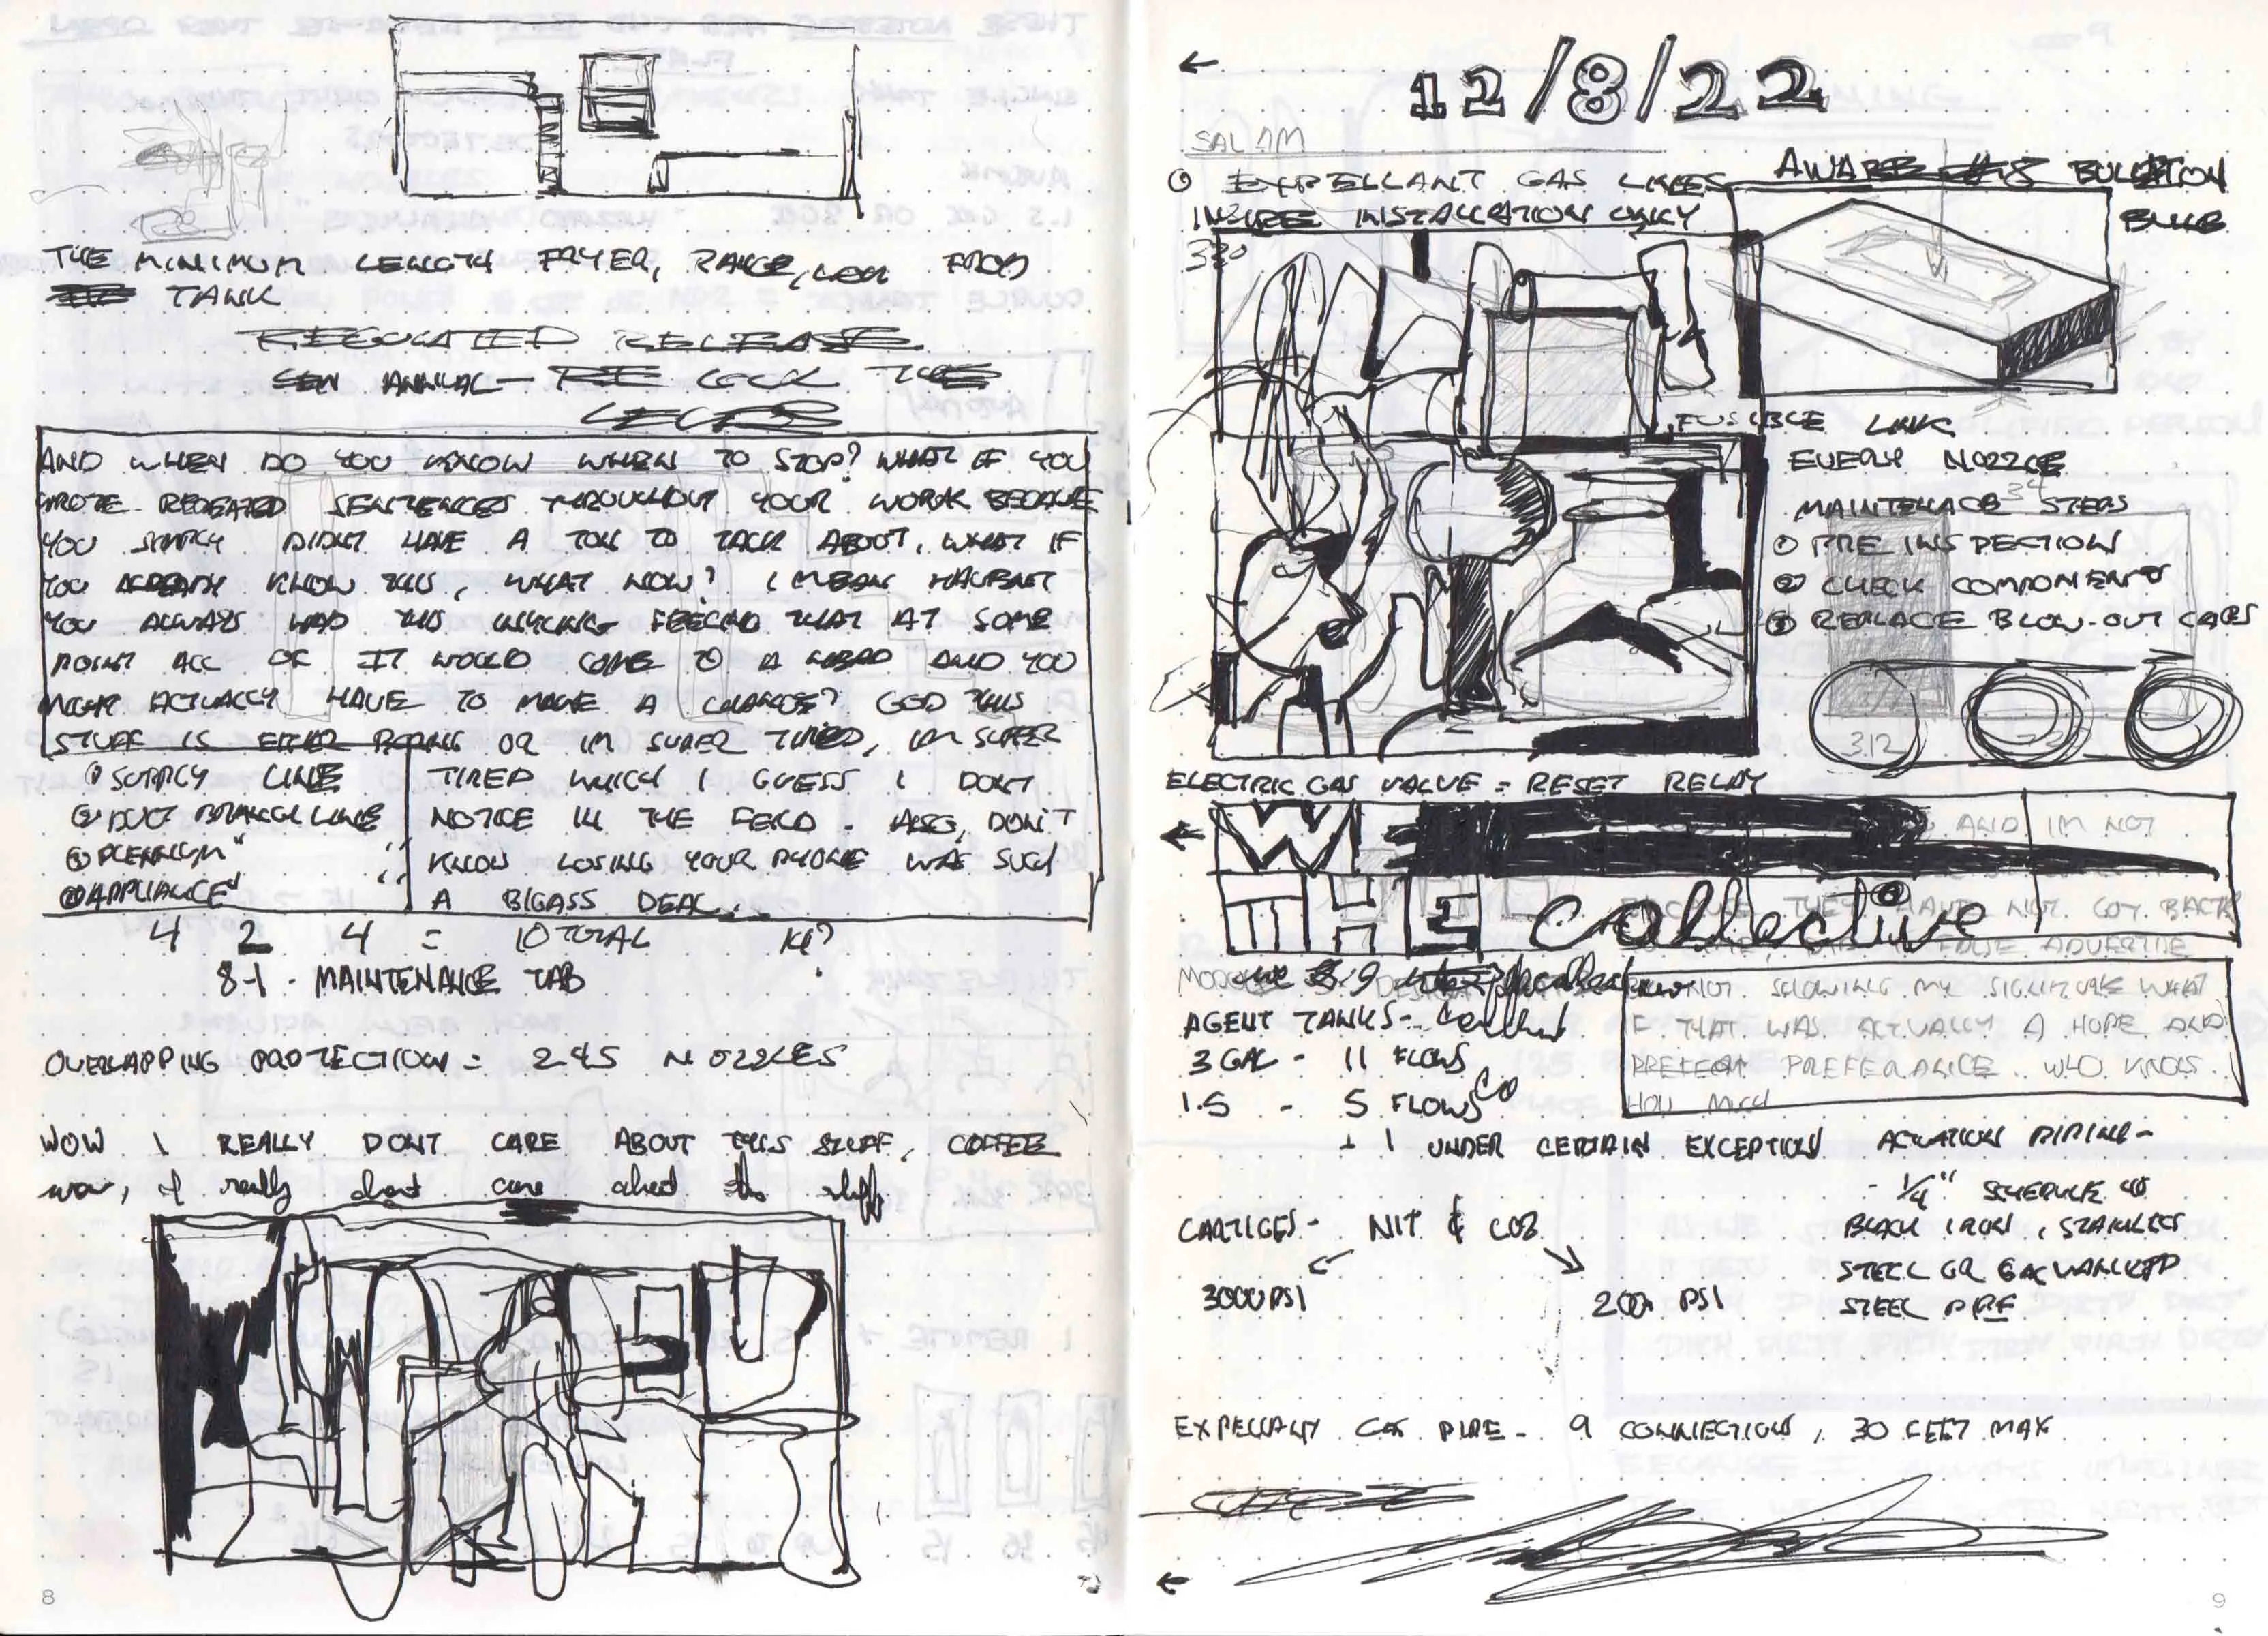 THE MINIMUM LENGTH FRYER, RANGE, FROM
TANK
REGULATED RELEASE
ANNUAL - LOCK
AND WHEN DO YOU KNOW WHEN TO STOP? WHAT IF YOU
WROTE REPEATED SENTENCES THROUGHOUT YOUR WORK BECAUSE
YOU SIMPLY DIDNT HAVE A TON TO TALK ABOUT, WHAT IF
YOU ALREADY KNOW THIS, WHAT NOW? I MEAN HAVENT
YOU ALWAYS HAD THIS INKLING FEELING THAT AT SOME
POINT ALL OF IT WOULD COME TO A HEAD AND YOU
MIGHT ACTUALLY HAVE TO MAKE A CHANGE? GOD THIS
STUFF IS EITHER BORING OR IM SUPER TIRED, IM SUPER
TIRED WHICH I GUESS I DONT
NOTICE IN THE FIELD - ALSO, DON'T
KNOW LOSING YOUR PHONE WAS SUCH
A BIGASS DEAL.
① SUPPLY LINE
② DUCT BRANCH LINE
③ PLENNUM " "
④ APPLIANCE " "
4 2 4 = 10 TOTAL 14?
8-1 - MAINTENANCE TAB
OVERLAPPING PROTECTION = 245 NOZZLES
WOW I REALLY DONT CARE ABOUT THIS STUFF, COFFEE
wow, I really dont care about this stuff
8
12/8/22
SALAM
① EXPELLANT GAS LINES
INSIDE INSTALLATION ONLY
AWARE #8 BULLETION
BULB
FUSIBLE LINK
EVERY NOZZLE
MAINTENACE STEPS
① PRE INSPECTION
② CHECK COMPONENTS
③ REPLACE BLOW-OUT CAPS
3.12
ELECTRIC GAS VALVE = RESET RELAY
WE
AND IM NOT
THE Collective
BECAUSE THEY HAVE NOT GOT BACK
ADVERTISE
NOT SHOWING MY SIGNATURE WHAT
IF THAT WAS ACTUALLY A HOPE AND
PREFERANCE. WHO KNOWS
HOW MUCH
AGENT TANKS -
3 GAL - 11 FLOWS
1.5 - 5 FLOWS
+ 1 UNDER CERTAIN EXCEPTION
ACTUATION PIPING -
- 1/4" SCHEDULE 40
BLACK IRON, STAINLESS
STEEL OR GALVANIZED
STEEL PIPE
CARTIGES - NIT & CO2
3000 PSI
200 PSI
EXPELLANT GAS PIPE - 9 CONNECTIONS, 30 FEET MAX
9